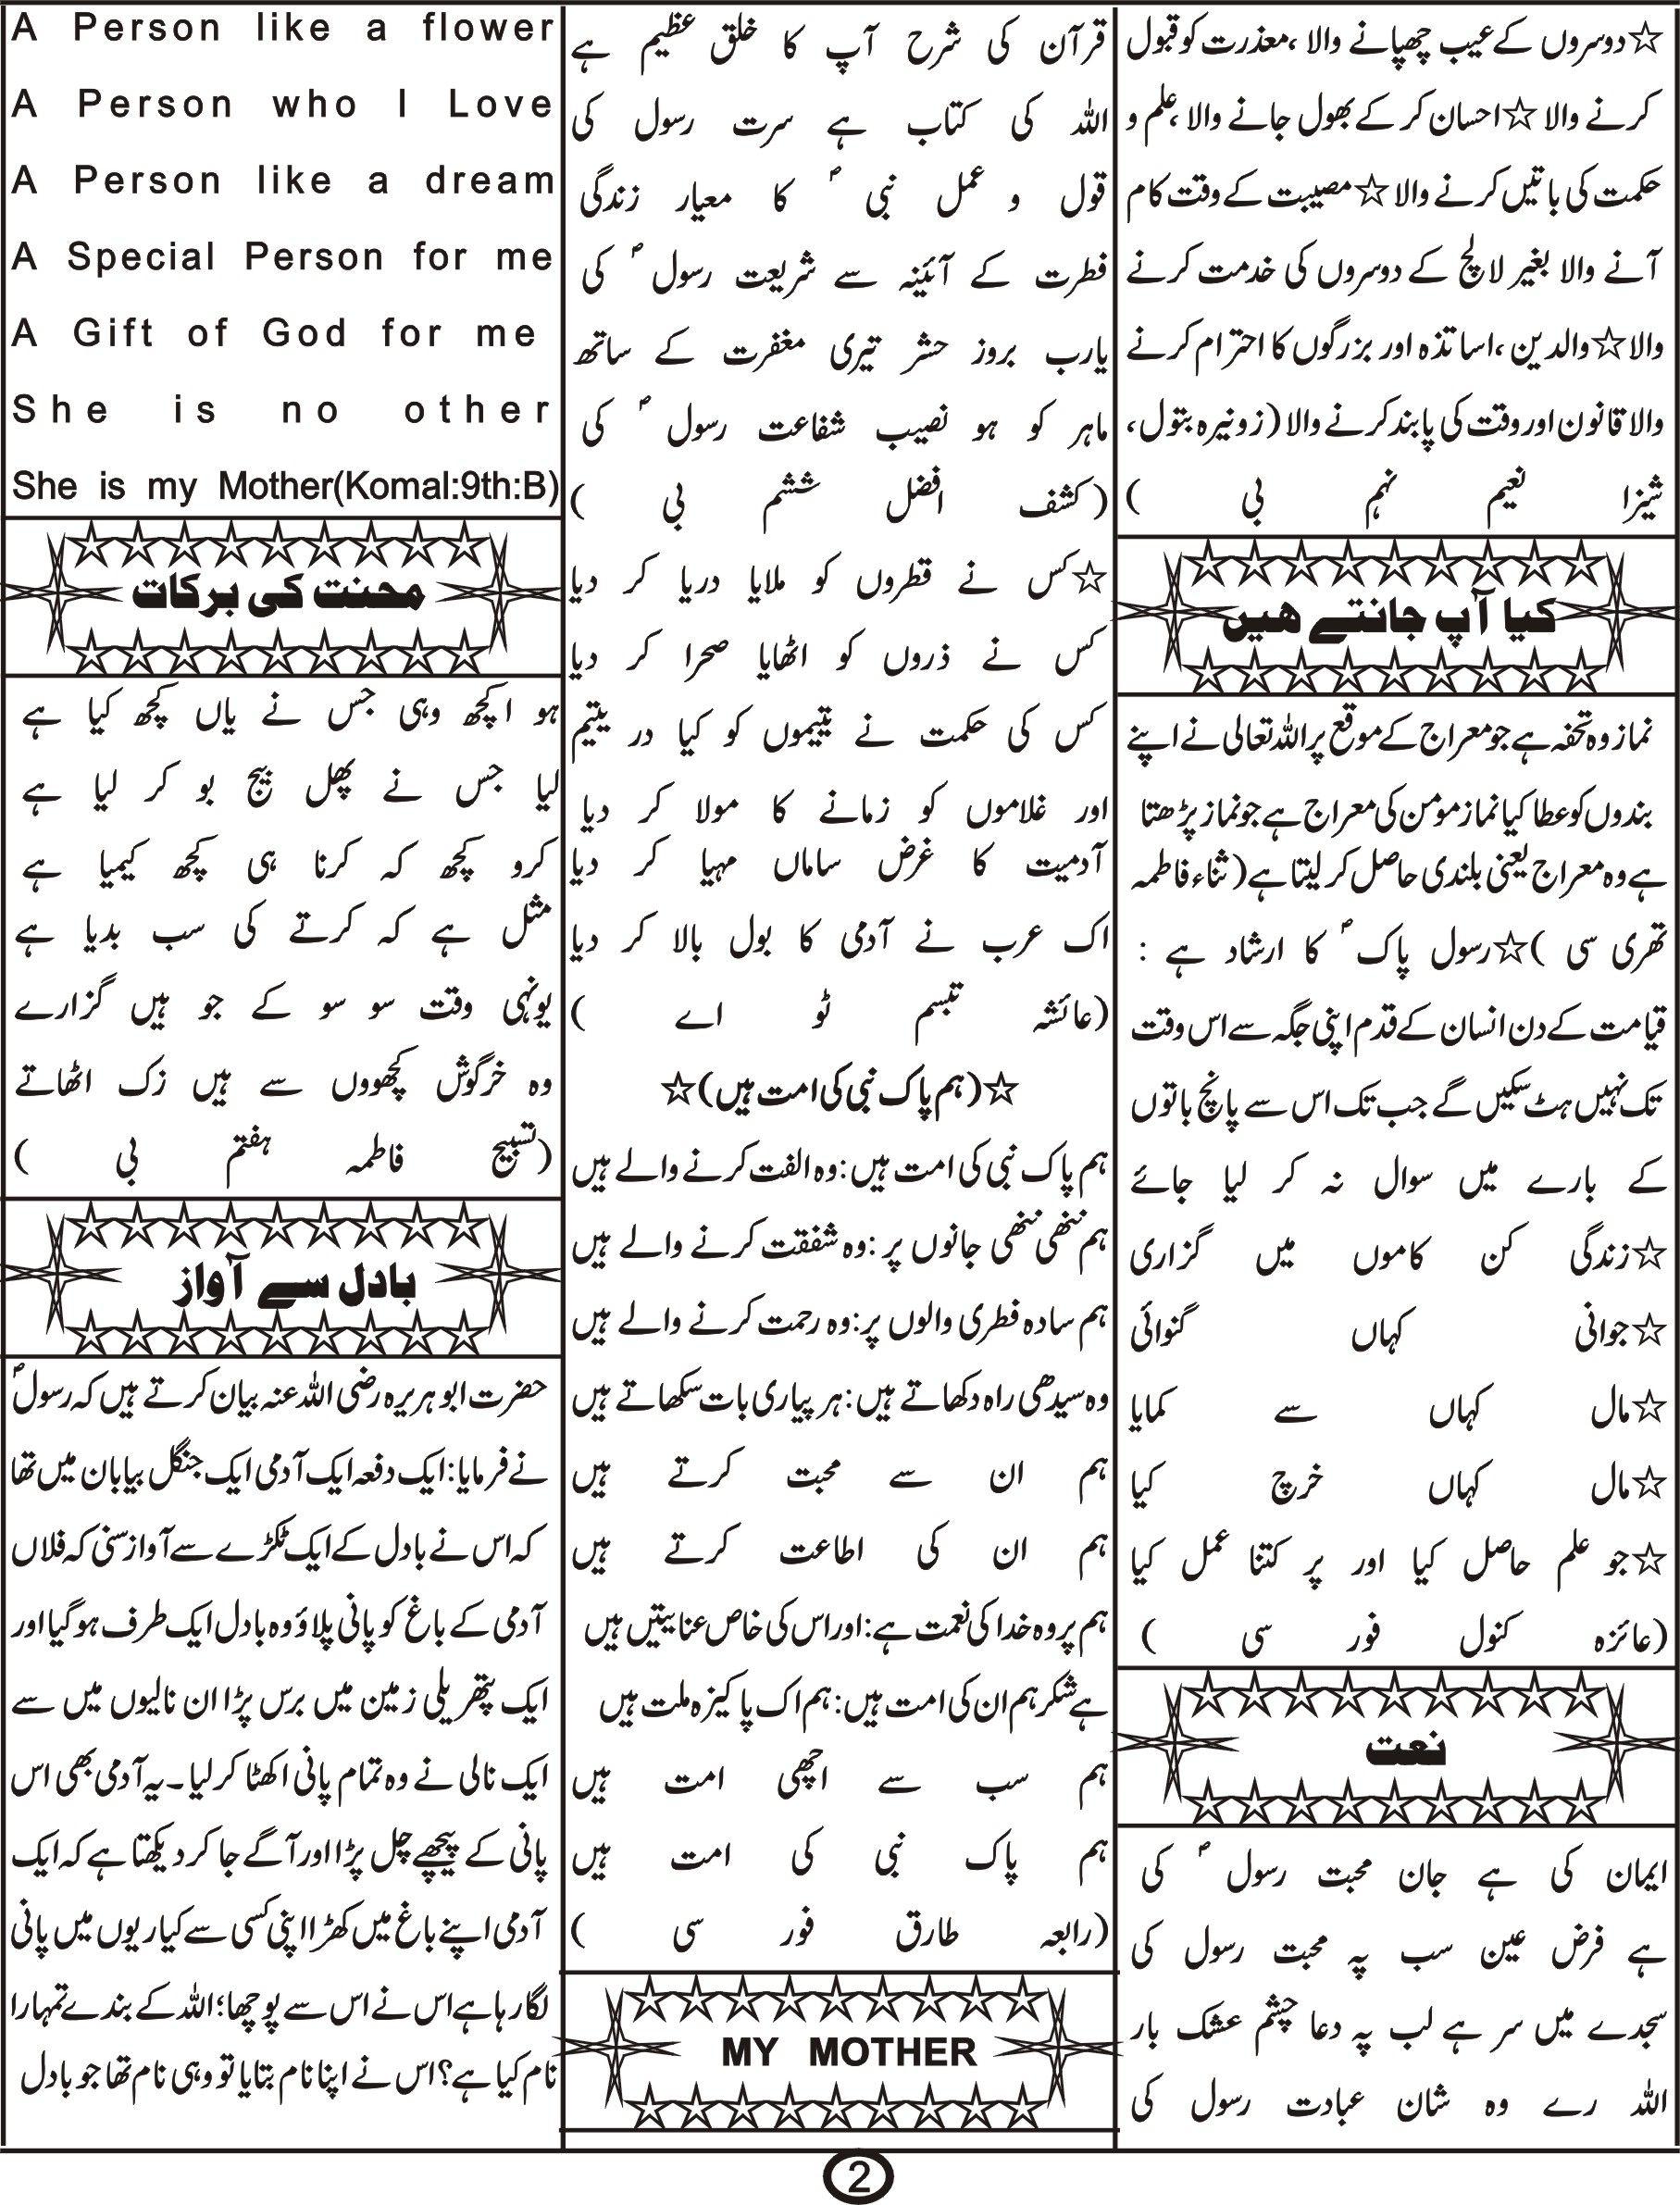 ☆دوسروں کے عیب چھپانے والا ،معذرت کو قبول
کرنے والا ☆احسان کر کے بھول جانے والا ،علم و
حکمت کی باتیں کرنے والا ☆مصیبت کے وقت کام
آنے والا بغیر لالچ کے دوسروں کی خدمت کرنے
والا☆والدین ،اساتذہ اور بزرگوں کا احترام کرنے
والا قانون اور وقت کی پابند کرنے والا (زونیرہ بتول،
شیزا نعیم نہم بی )
کیا آپ جانتے ھیں
نماز وہ تحفہ ہے جو معراج کے موقع پر اللہ تعالی نے اپنے
بندوں کو عطا کیا نماز مومن کی معراج ہے جو نماز پڑھتا
ہے وہ معراج یعنی بلندی حاصل کر لیتا ہے (ثناء فاطمہ
تھری سی )☆رسول پاک ؐ کا ارشاد ہے :
قیامت کے دن انسان کے قدم اپنی جگہ سے اس وقت
تک نہیں ہٹ سکیں گے جب تک اس سے پانچ باتوں
کے بارے میں سوال نہ کر لیا جائے
☆زندگی کن کاموں میں گزاری
☆جوانی کہاں گنوائی
☆مال کہاں سے کمایا
☆مال کہاں خرچ کیا
☆جو علم حاصل کیا اور پر کتنا عمل کیا
(عائزہ کنول فور سی )
نعت
ایمان کی ہے جان محبت رسول ؐ کی
ہے فرض عین سب پہ محبت رسول کی
سجدے میں سر ہے لب پہ دعا چشم عشک بار
اللہ رے وہ شان عبادت رسول کی
قرآن کی شرح آپ کا خلق عظیم ہے
اللہ کی کتاب ہے سرت رسول کی
قول و عمل نبی ؐ کا معیار زندگی
فطرت کے آئینہ سے شریعت رسول ؐ کی
یارب بروز حشر تیری مغفرت کے ساتھ
ماہر کو ہو نصیب شفاعت رسول ؐ کی
(کشف افضل ششم بی )
☆کس نے قطروں کو ملایا دریا کر دیا
کس نے ذروں کو اٹھایا صحرا کر دیا
کس کی حکمت نے یتیموں کو کیا در یتیم
اور غلاموں کو زمانے کا مولا کر دیا
آدمیت کا غرض ساماں مہیا کر دیا
اک عرب نے آدمی کا بول بالا کر دیا
(عائشہ تبسم ٹو اے )
☆(ہم پاک نبی کی امت ہیں)☆
ہم پاک نبی کی امت ہیں:وہ الفت کرنے والے ہیں
ہم ننھی ننھی جانوں پر :وہ شفقت کرنے والے ہیں
ہم سادہ فطری والوں پر:وہ رحمت کرنے والے ہیں
وہ سیدھی راہ دکھاتے ہیں:ہر پیاری بات سکھاتے ہیں
ہم ان سے محبت کرتے ہیں
ہم ان کی اطاعت کرتے ہیں
ہم پر وہ خدا کی نعمت ہے:اور اس کی خاص عنایتیں ہیں
ہے شکر ہم ان کی امت ہیں:ہم اک پاکیزہ ملت ہیں
ہم سب سے اچھی امت ہیں
ہم پاک نبی کی امت ہیں
(رابعہ طارق فور سی )
MY MOTHER
A Person like a flower
A Person who I Love
A Person like a dream
A Special Person for me
A Gift of God for me
She is no other
She is my Mother(Komal:9th:B)
محنت کی برکات
ہو اکچھ وہی جس نے یاں کچھ کیا ہے
لیا جس نے پھل بیج بو کر لیا ہے
کرو کچھ کہ کرنا ہی کچھ کیمیا ہے
مثل ہے کہ کرتے کی سب بدیا ہے
یونہی وقت سو سو کے جو ہیں گزارے
وہ خرگوش کچھووں سے ہیں زک اٹھاتے
(تسبیح فاطمہ ہفتم بی )
بادل سے آواز
حضرت ابو ہریرہ رضی اللہ عنہ بیان کرتے ہیں کہ رسولؐ
نے فرمایا:ایک دفعہ ایک آدمی ایک جنگل بیابان میں تھا
کہ اس نے بادل کے ایک ٹکڑے سے آواز سنی کہ فلاں
آدمی کے باغ کو پانی پلاؤ وہ بادل ایک طرف ہو گیا اور
ایک پتھریلی زمین میں برس پڑا ان نالیوں میں سے
ایک نالی نے وہ تمام پانی اکھٹا کر لیا ۔یہ آدمی بھی اس
پانی کے پیچھے چل پڑا اور آگے جا کر دیکھتا ہے کہ ایک
آدمی اپنے باغ میں کھڑا اپنی کسی سے کیاریوں میں پانی
لگا رہا ہے اس نے اس سے پوچھا؛اللہ کے بندے تمہارا
نام کیا ہے؟اس نے اپنا نام بتایا تو وہی نام تھا جو بادل
2